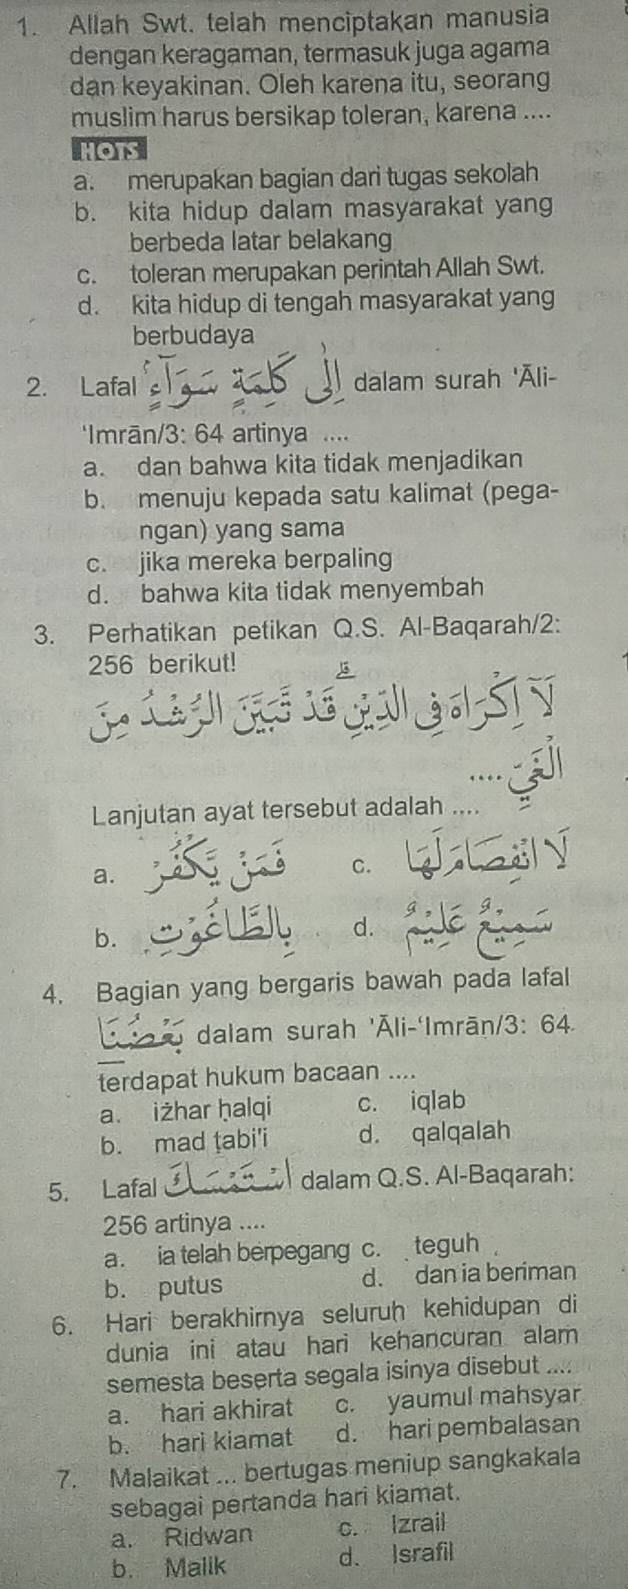 1. Allah Swt. telah menciptakan manusia
dengan keragaman, termasuk juga agama
dan keyakinan. Oleh karena itu, seorang
muslim harus bersikap toleran, karena ....
HOTS
a. merupakan bagian dari tugas sekolah
b. kita hidup dalam masyarakat yang
berbeda latar belakang
c. toleran merupakan perintah Allah Swt.
d. kita hidup di tengah masyarakat yang
berbudaya
2. Lafal اِلٰى كَلِمَةٍ سَوَاۤءٍ dalam surah 'Āli-
'Imrān/3: 64 artinya ....
a. dan bahwa kita tidak menjadikan
b. menuju kepada satu kalimat (pega-
ngan) yang sama
c. jika mereka berpaling
d. bahwa kita tidak menyembah
3. Perhatikan petikan Q.S. Al-Baqarah/2:
256 berikut!
لَآ اِكْرَاهَ فِى الدِّيْنِۗ قَدْ تَّبَيَّنَ الرُّشْدُ مِنَ
الْغَيِّ ....
Lanjutan ayat tersebut adalah ....
a. فَمَنْ يَّكْفُرْ c. لَا انْفِصَامَ لَهَا
b. بِالطَّاغُوْتِ d. سَمِيْعٌ عَلِيْمٌ
4. Bagian yang bergaris bawah pada lafal
بَعْضُنَا dalam surah 'Āli-'Imrān/3: 64
terdapat hukum bacaan ....
a. iżhar ḥalqi c. iqlab
b. mad ṭabi'i d. qalqalah
5. Lafal اسْتَمْسَكَ dalam Q.S. Al-Baqarah:
256 artinya ....
a. ia telah berpegang c. teguh
b. putus d. dan ia beriman
6. Hari berakhirnya seluruh kehidupan di
dunia ini atau hari kehancuran alam
semesta beserta segala isinya disebut ....
a. hari akhirat c. yaumul mahsyar
b. hari kiamat d. hari pembalasan
7. Malaikat ... bertugas meniup sangkakala
sebagai pertanda hari kiamat.
a. Ridwan c. Izrail
b. Malik d. Israfil